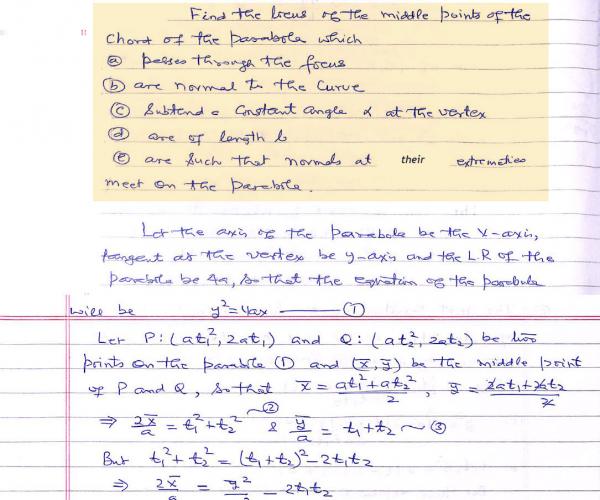 Find the locus of the middle points of the
" chord of the parabola which
(a) passes through the focus
(b) are normal to the curve
(c) subtend a constant angle α at the vertex
(d) are of length l
(e) are such that normals at their extremities
meet on the parabola.
Let the axis of the parabola be the x-axis,
tangent at the vertex be y-axis and the L.R of the
parabola be 4a, so that the equation of the parabola
will be y² = 4ax —— (1)
Let P: (at₁², 2at₁) and Q: (at₂², 2at₂) be two
points on the parabola (1) and (x̄, ȳ) be the middle point
of P and Q, so that x̄ = (at₁² + at₂²)/2, ȳ = (2at₁ + 2at₂)/2
⇒ 2x̄/a = t₁² + t₂² ~ (2) & ȳ/a = t₁ + t₂ ~ (3)
But t₁² + t₂² = (t₁ + t₂)² - 2t₁t₂
⇒ 2x̄/a = ȳ²/a² - 2t₁t₂